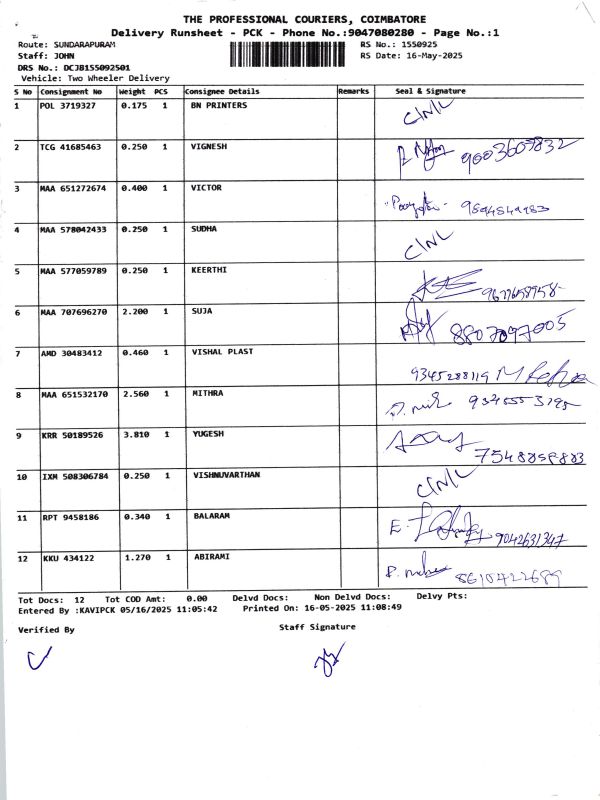 THE PROFESSIONAL COURIERS, COIMBATORE
Delivery Runsheet - PCK - Phone No.:9047080280 - Page No.:1
Route: SUNDARAPURAM RS No.: 1550925
Staff: JOHN RS Date: 16-May-2025
DRS No.: DCJB155092501
Vehicle: Two Wheeler Delivery
S No Consignment No Weight PCS Consignee Details Remarks Seal & Signature
1 POL 3719327 0.175 1 BN PRINTERS C/N/L
2 TCG 41685463 0.250 1 VIGNESH 9003607832
3 MAA 651272674 0.400 1 VICTOR
4 MAA 578042433 0.250 1 SUDHA C/N/L
5 MAA 577059789 0.250 1 KEERTHI 9677658958
6 MAA 707696270 2.200 1 SUJA 8807097005
7 AMD 30483412 0.460 1 VISHAL PLAST 9345288119
8 MAA 651532170 2.560 1 MITHRA
9 KRR 50189526 3.810 1 YUGESH
10 IXM 508306784 0.250 1 VISHNUVARTHAN C/N/L
11 RPT 9458186 0.340 1 BALARAM 9042631347
12 KKU 434122 1.270 1 ABIRAMI 8610422689
Tot Docs: 12 Tot COD Amt: 0.00 Delvd Docs: Non Delvd Docs: Delvy Pts:
Entered By :KAVIPCK 05/16/2025 11:05:42 Printed On: 16-05-2025 11:08:49
Verified By Staff Signature